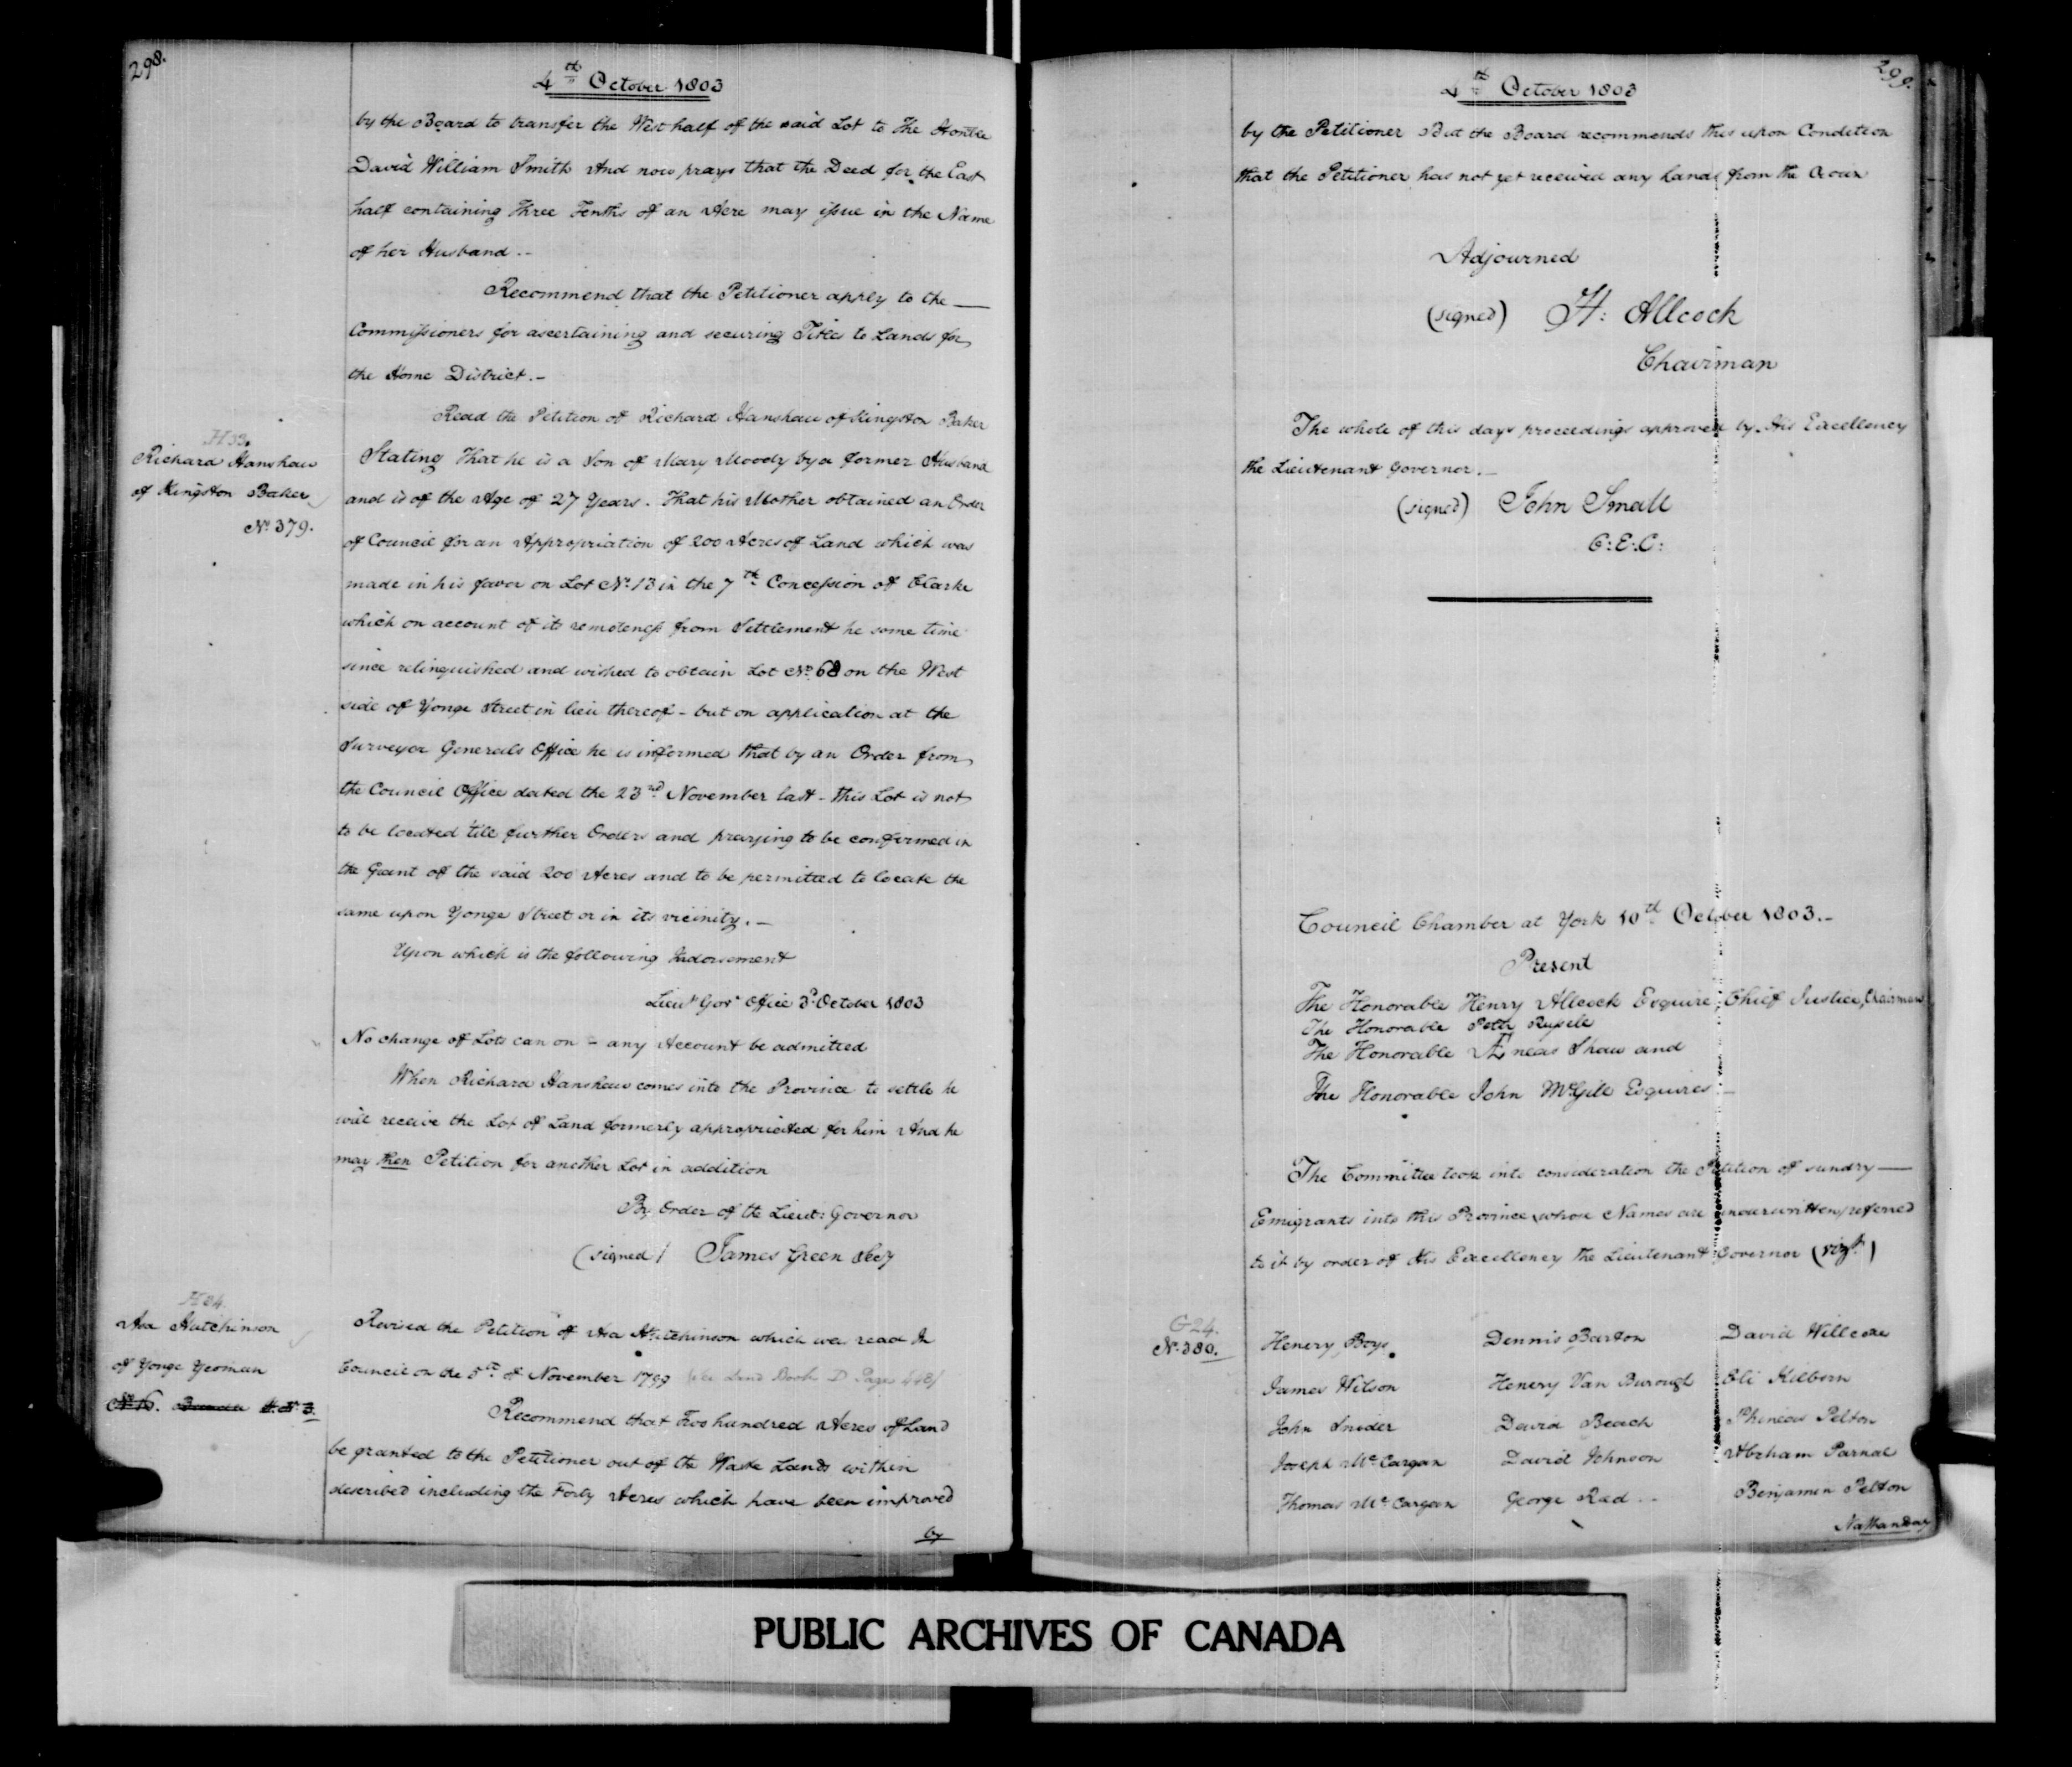 298.
4th October 1803
by the Board to transfer the West half of the said Lot to The Honble
David William Smith And now prays that the Deed for the East
half containing Three Tenths of an Acre may issue in the Name
of her Husband.-
Recommend that the Petitioner apply to the
Commissioners for ascertaining and securing Titles to Lands for
the Home District.-
Read the Petition of Richard Hanshaw of Kingston Baker
H 33.
Richard Hanshaw
of Kingston Baker
No. 379.
Stating That he is a Son of Mary Moody by a former Husband
and is of the Age of 27 Years. That his Mother obtained an Order
of Council for an Appropriation of 200 Acres of Land which was
made in his favor on Lot No. 13 in the 7th Concession of Clarke
which on account of its remoteness from Settlement he some time
since relinquished and wished to obtain Lot No. 68 on the West
side of Yonge Street in lieu thereof - but on application at the
Surveyor Generals Office he is informed that by an Order from
the Council Office dated the 23rd November last - this Lot is not
to be located till further Orders and praying to be confirmed in
the Grant of the said 200 Acres and to be permitted to locate the
same upon Yonge Street or in its vicinity.-
Upon which is the following Indorsement
Lieut Govr Office 3d October 1803
No change of Lots can on - any Account be admitted
When Richard Hanshaw comes into the Province to settle he
will receive the Lot of Land formerly appropriated for him And he
may then Petition for another Lot in addition
By Order of the Lieut: Governor
(signed) James Green Secy
H 34.
Asa Hutchinson
of Yonge Yeoman
No. 16.
Revised the Petition of Asa Hutchinson which was read In
Council on the 5th of November 1799 (see Land Book D Page 448)
Recommend that Two hundred Acres of Land
be granted to the Petitioner out of the Waste Lands within
described including the Forty Acres which have been improved
by
299.
4th October 1803
by the Petitioner But the Board recommends this upon Condition
that the Petitioner has not yet received any Lands from the Crown
Adjourned
(signed) H: Allcock
Chairman
The whole of this days proceedings approved by His Excellency
the Lieutenant Governor.-
(signed) John Small
C:E:C:
Council Chamber at York 10th October 1803.-
Present
The Honorable Henry Allcock Esquire, Chief Justice, Chairman
The Honorable Peter Russell
The Honorable Æneas Shaw and
The Honorable John McGill Esquires
The Committee took into consideration the Petition of sundry
Emigrants into this Province (whose Names are underwritten) referred
to it by order of His Excellency the Lieutenant Governor (vizt)
G 24.
No. 380.
Henery Boys Dennis Barton David Willcox
James Wilson Henery Van Burough Eli Kilborn
John Snider David Beach Phineas Pelton
Joseph McCargan David Johnson Abraham Parnal
Thomas McCargan George Rad Benjamin Pelton
PUBLIC ARCHIVES OF CANADA